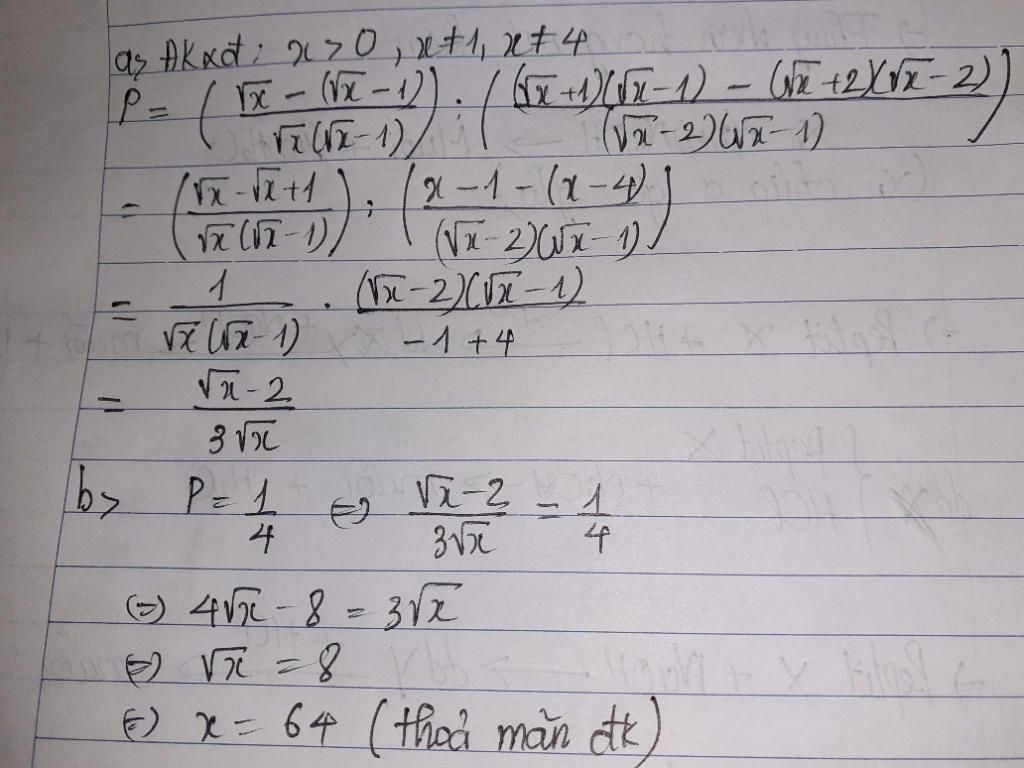 a> ĐKxđ: x > 0, x ≠ 1, x ≠ 4
P = ( (√x - (√x - 1)) / (√x(√x - 1)) ) : ( ((√x + 1)(√x - 1) - (√x + 2)(√x - 2)) / ((√x - 2)(√x - 1)) )
= ( (√x - √x + 1) / (√x(√x - 1)) ) : ( (x - 1 - (x - 4)) / ((√x - 2)(√x - 1)) )
= 1 / (√x(√x - 1)) . ((√x - 2)(√x - 1)) / (-1 + 4)
= (√x - 2) / (3√x)
b> P = 1/4 ⇔ (√x - 2) / (3√x) = 1/4
⇔ 4√x - 8 = 3√x
⇔ √x = 8
⇔ x = 64 (thoả mãn đk)